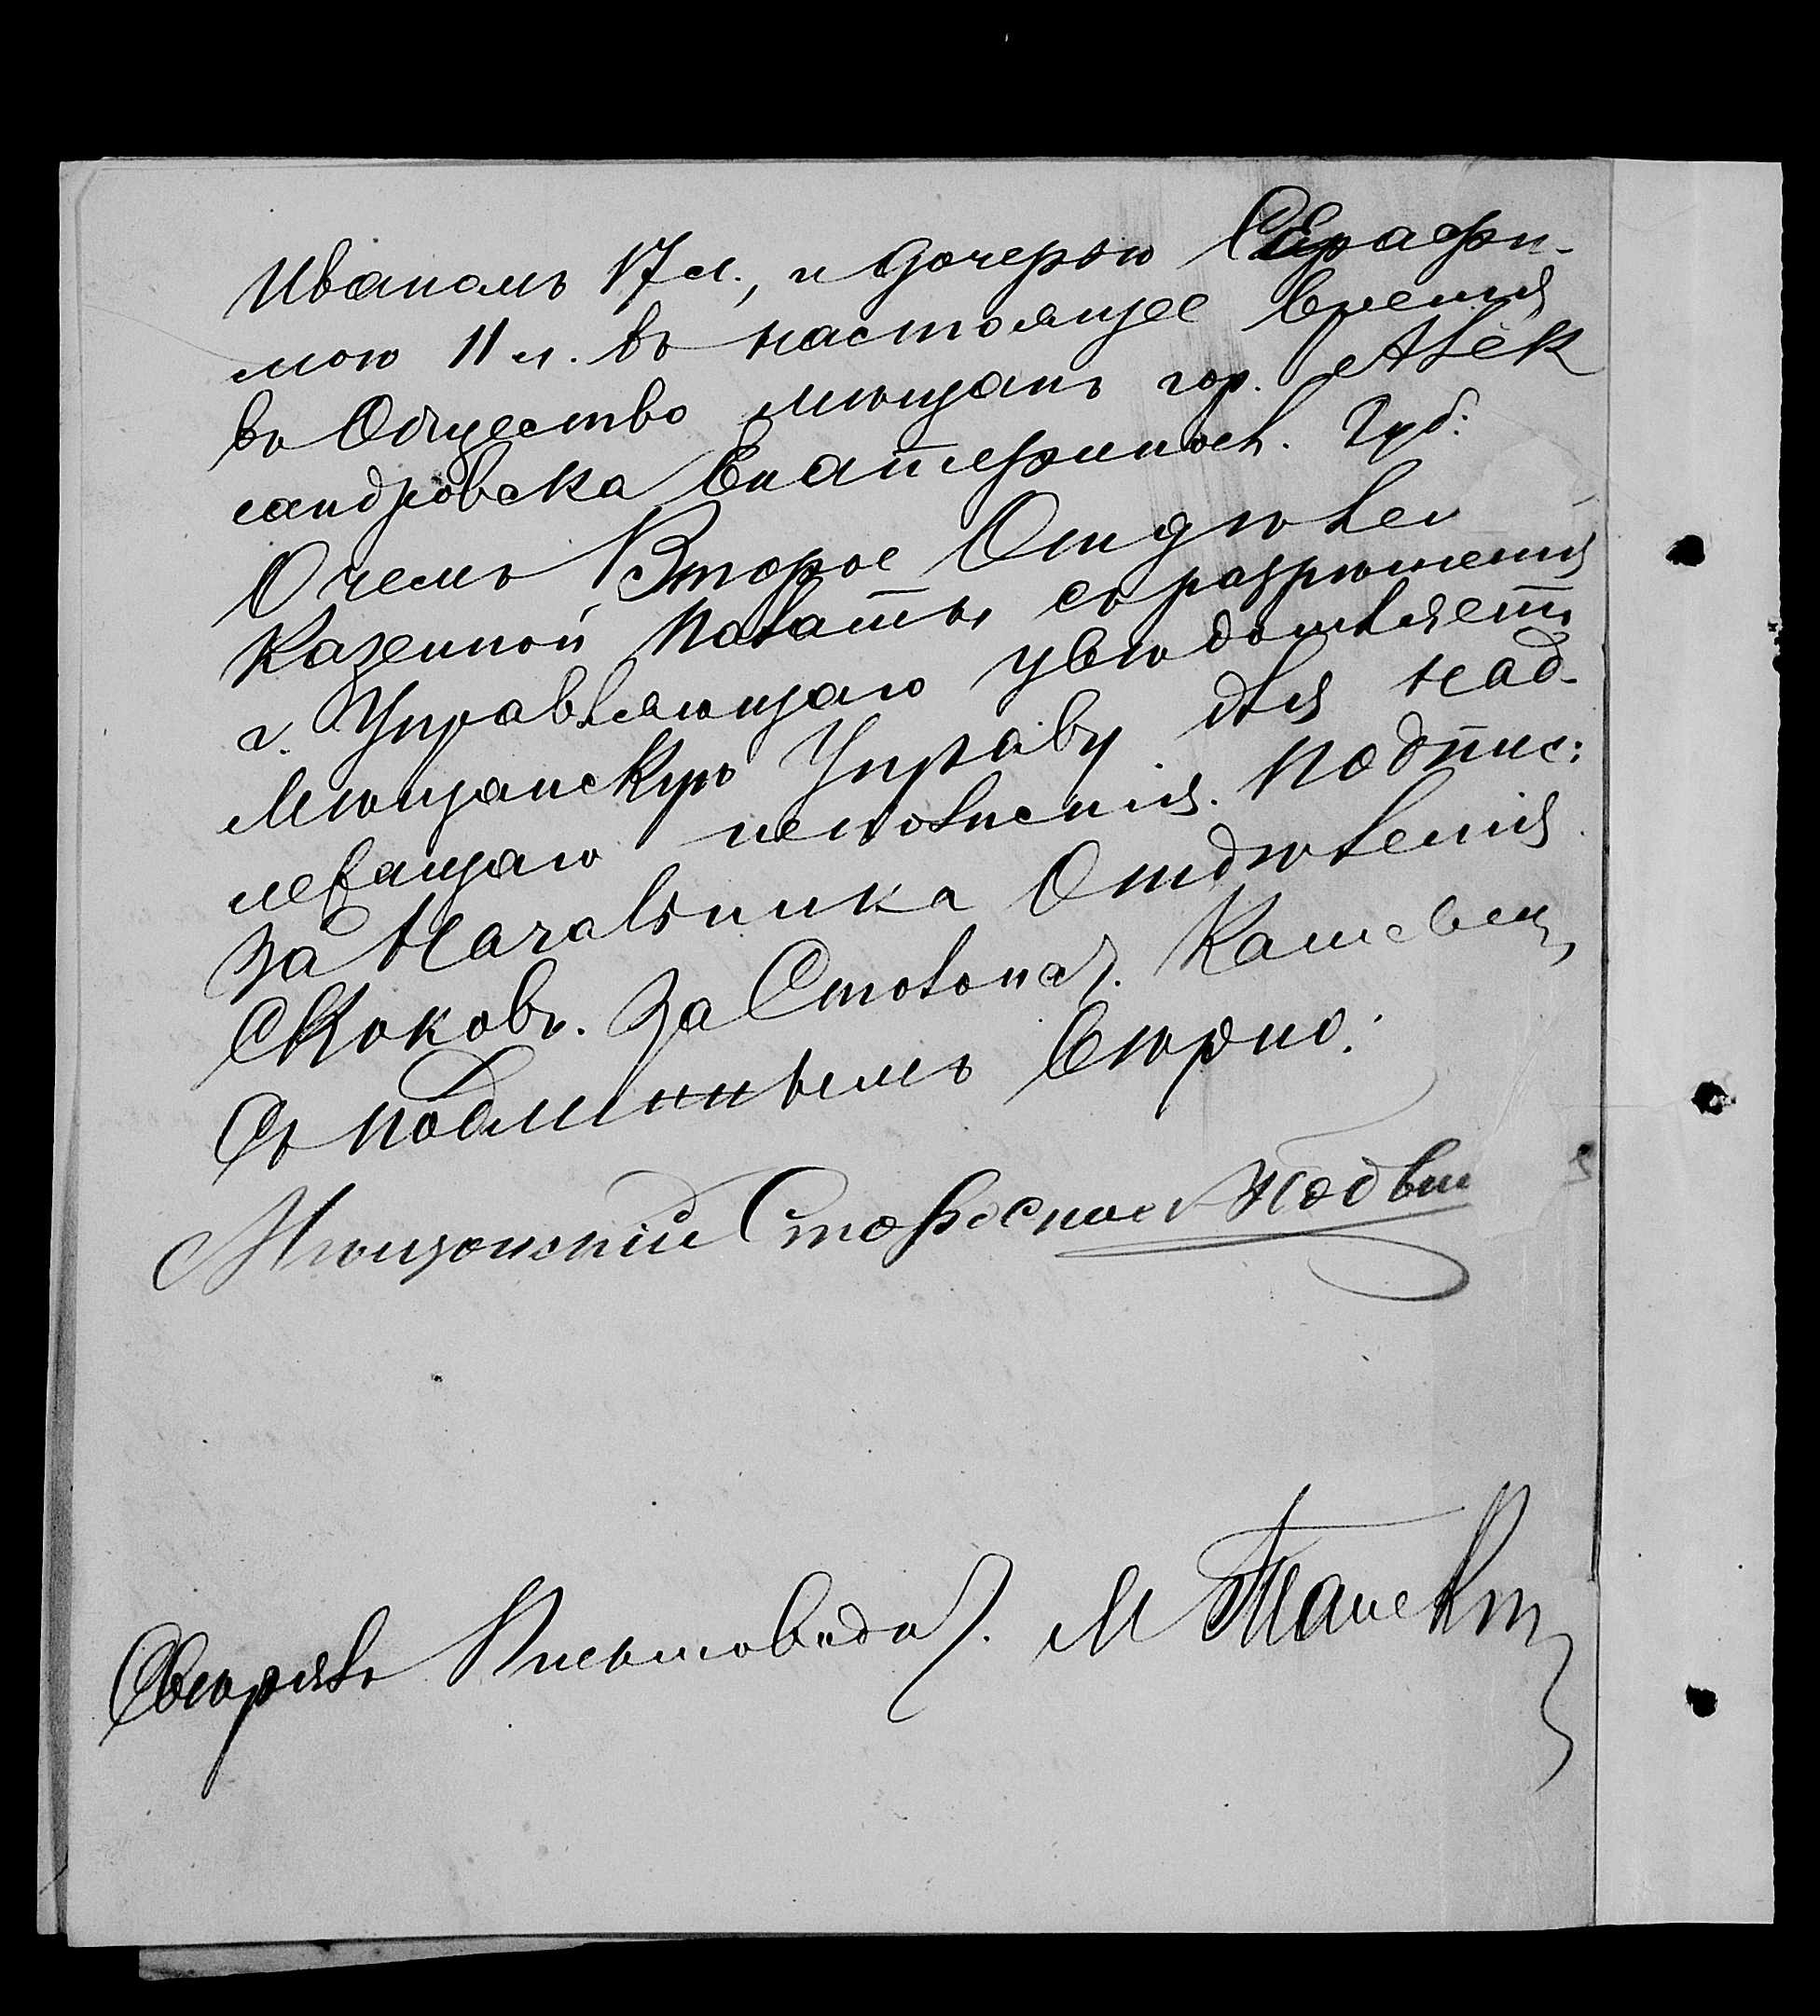 Иваномъ 17 л., и дочерью Серафи-
мою 11 л. въ настоящее время
въ Общество мѣщанъ гор. Алек
сандровска Екатеринос. Губ:
О чемъ Второе Отдѣлен
Казенной Палаты съ разрѣшенія
г. Управляющаго увѣдомляетъ
Мѣщанскую Управу для над-
лежащаго исполненія. Подпис:
За Начальника Отдѣленія
Скоковъ. За Столонач.
Съ подлиннымъ вѣрно:
Мѣщанскій Староста
Свѣрялъ Письмовод. М